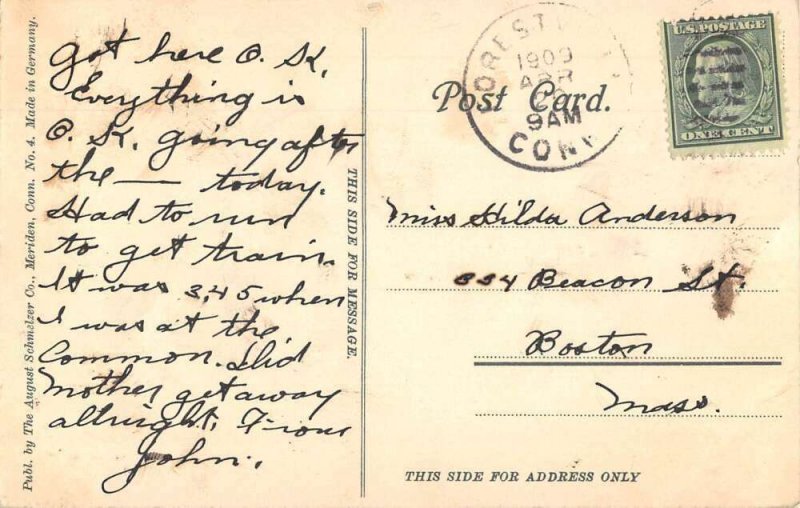 Publ. by The August Schmelzer Co., Meriden, Conn. No. 4. Made in Germany.
Got here O. K.
Everything is
O. K. going after
the — today.
Had to run
to get train.
It was 3,45 when
I was at the
Common. Did
mother get away
allright. From
John.
THIS SIDE FOR MESSAGE.
Post Card.
1909
APR
9AM
CONN
U.S. POSTAGE
ONE CENT
Miss Hilda Anderson
334 Beacon St.
Boston
Mass.
THIS SIDE FOR ADDRESS ONLY